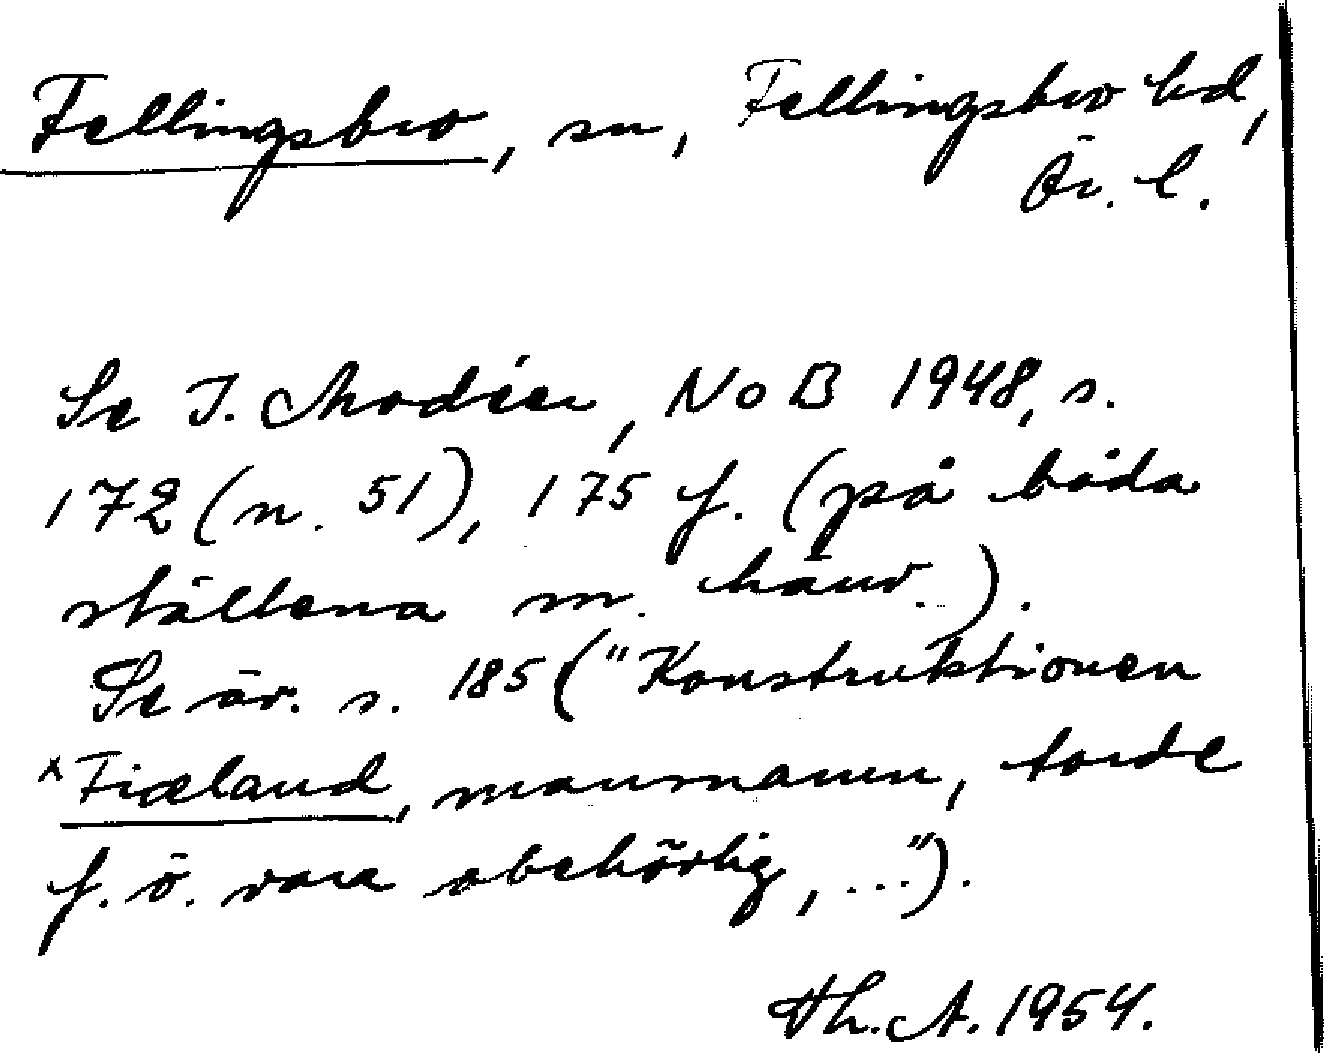 Fellingsbro, sn, Fellingsbro hd,
Ör. l.
Se I. Modéer, NoB 1948, s.
172 (n. 51), 175 f. (på båda
ställena m. hänv.).
Se äv. s. 185 ("Konstruktionen
*Fiæland, mansnamn, torde
f. ö. vara obehövlig, ...").
Th. A. 1954.